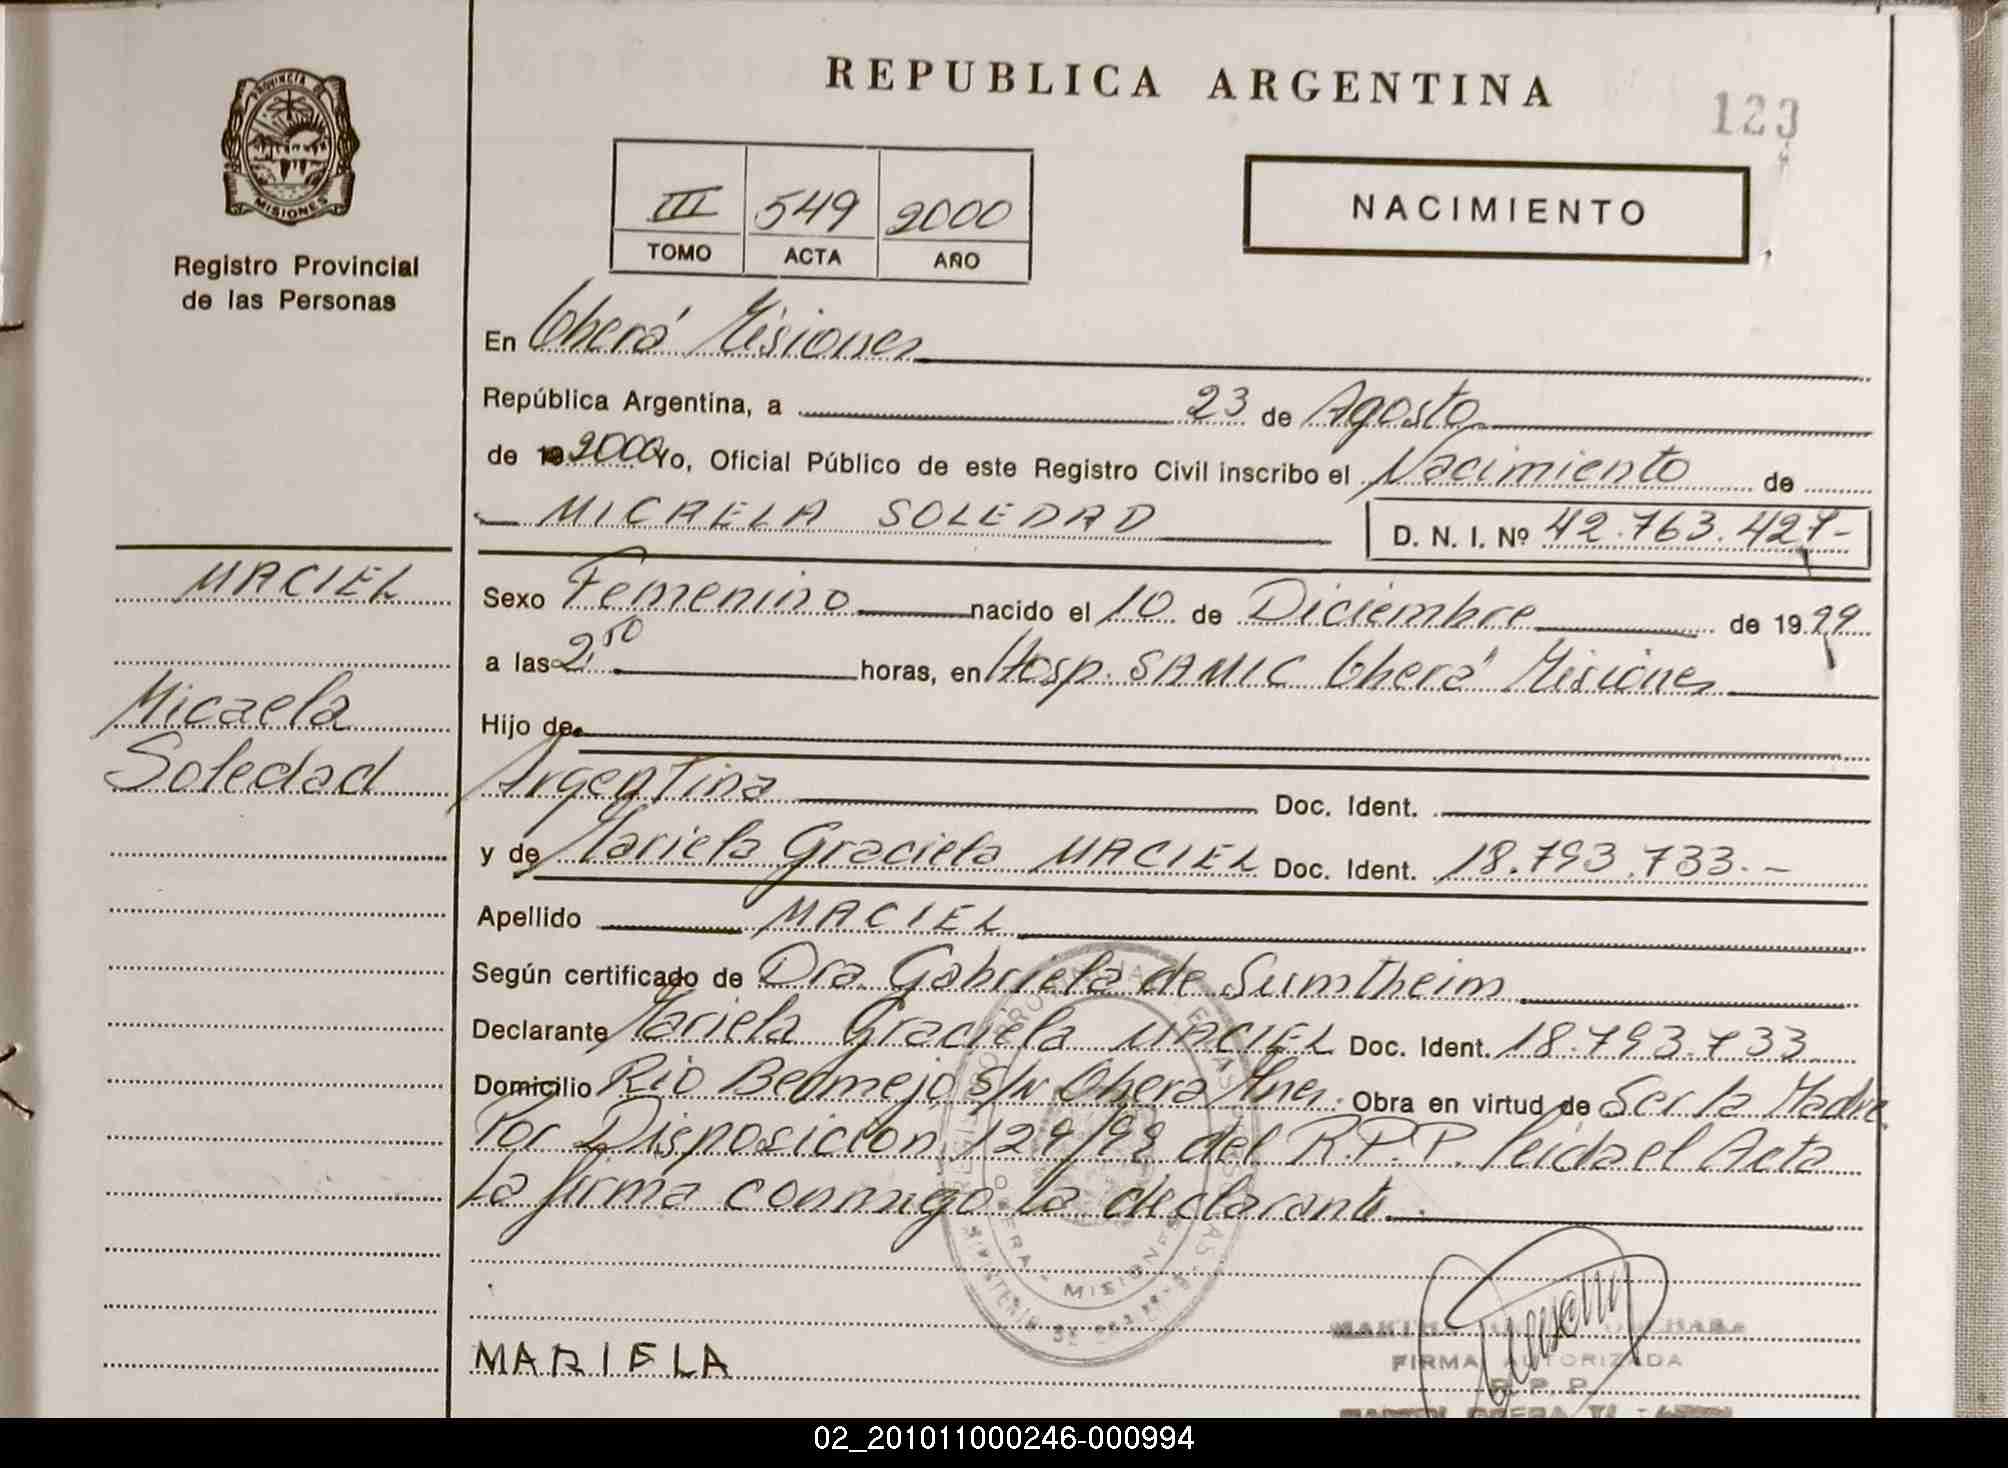 REPUBLICA ARGENTINA
123
PROVINCIA DE
MISIONES
Registro Provincial
de las Personas
III 549 2000
TOMO ACTA AÑO
NACIMIENTO
En Oberá Misiones
República Argentina, a 23 de Agosto
de 19 2000 Yo, Oficial Público de este Registro Civil inscribo el Nacimiento de
MICAELA SOLEDAD D. N. I. Nº 42.763.427-
MACIEL
Micaela
Soledad
Sexo Femenino nacido el 10 de Diciembre de 1999
a las 2,50 horas, en Hosp. SAMIC Oberá Misiones
Hijo de
Argentina Doc. Ident.
y de Mariela Graciela MACIEL Doc. Ident. 18.793.733.-
Apellido MACIEL
Según certificado de Dra. Gabriela de Sumtheim
Declarante Mariela Graciela MACIEL Doc. Ident. 18.793.733
Domicilio Rio Bermejo S/N Obera Mnes. Obra en virtud de Ser la Madre.
Por Disposicion 129/98 del R.P.P. leida el Acta
la firma conmigo la declarante.
OBERA - MISIONES
MARIELA
FIRMA AUTORIZADA
R. P. P.
02_201011000246-000994